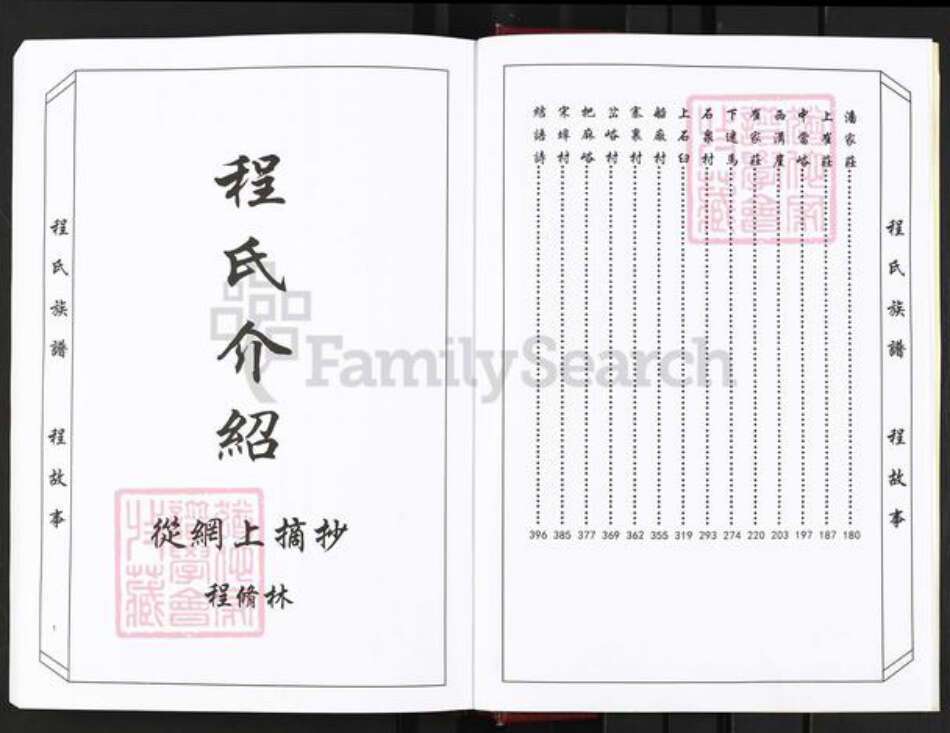 程氏族譜 程故事
潘家莊 180
上崔莊 187
中當峪 197
西淇崖 203
崔家莊 220
下速馬 274
石泉村 293
上石臼 319
船廠村 355
寨裏村 362
岔峪村 369
把麻峪 377
宋埠村 385
結語詩 396
程氏介紹
從網上摘抄
程脩林
程氏族譜 程故事
1
FamilySearch